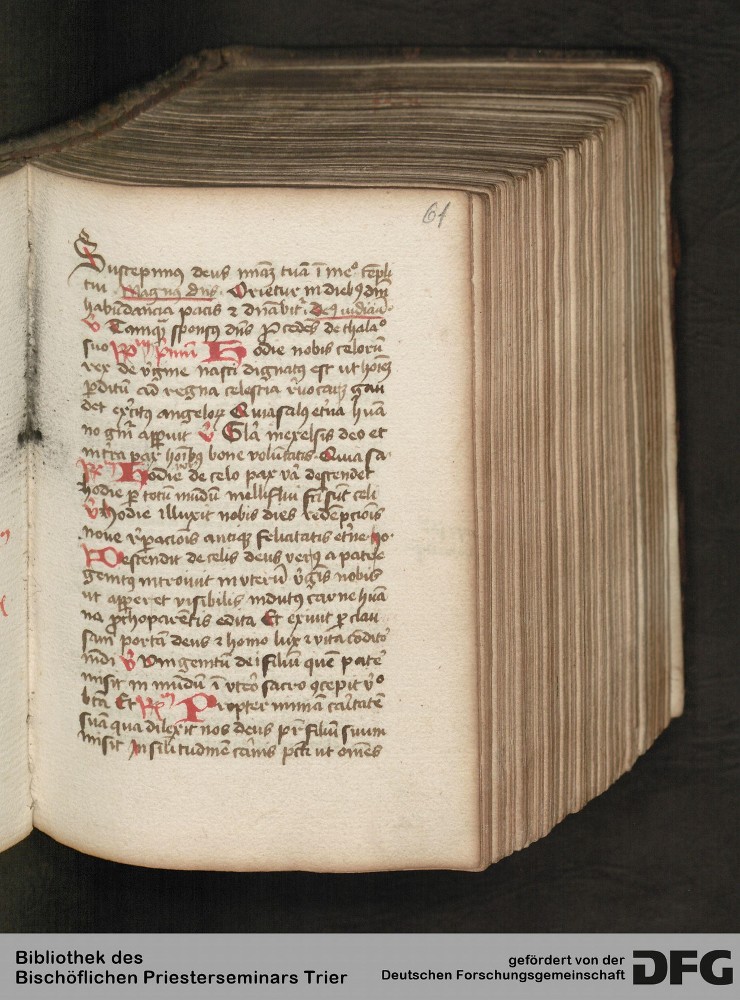 61
Suscepimus deus miam tuā ī me° tēpli
tui Magnus dns Orietur in diebus dni
habūdancia pacis & dn̄abit̄ Deus iudiciū
V Tamqȝ sponsus dn̄s ꝓcedēs de thala°
suo Rm primū Hodie nobis celorū
rex de v̄gine nasci dignatus est ut hoīeȝ
ꝑditū ad regna celestia r̄uocaret gau
det exc̄itus angelorū Quia salus et̄na hūa
no gn̄i apꝑuit V Gl̄a in excelsis deo et
in t̄ra pax hoībus bone volūtatis Quia sa
R Hodie de celo pax v̄a descendet
hodie ꝑ totū mūdū melliflui fc̄i sūt celi
V Hodie illuxit nobis dies redēpciōis
noue r̄paciōis antique felicitatis et̄ne Ho
Descendit de celis deus verus a patre
genitus introiuit in vterū v̄gīs nobis
ut apꝑeret visibilis indutus carne hūa
na ꝓthoparētis edita Et exiuit ꝑ clau
sam portā deus & homo lux & vita cōdito
mūdi V Vnigenitū dei filiū quē pate
misit in mūdū ī vt̄o sacro ↄcepit v̄o
btā Et R Propter nimiā caritatē
suā qua dilexit nos deus pr̄ filiū suum
misit In silitudinē carnis pcti ut om̄es
Bibliothek des
Bischöflichen Priesterseminars Trier
gefördert von der
Deutschen Forschungsgemeinschaft
DFG